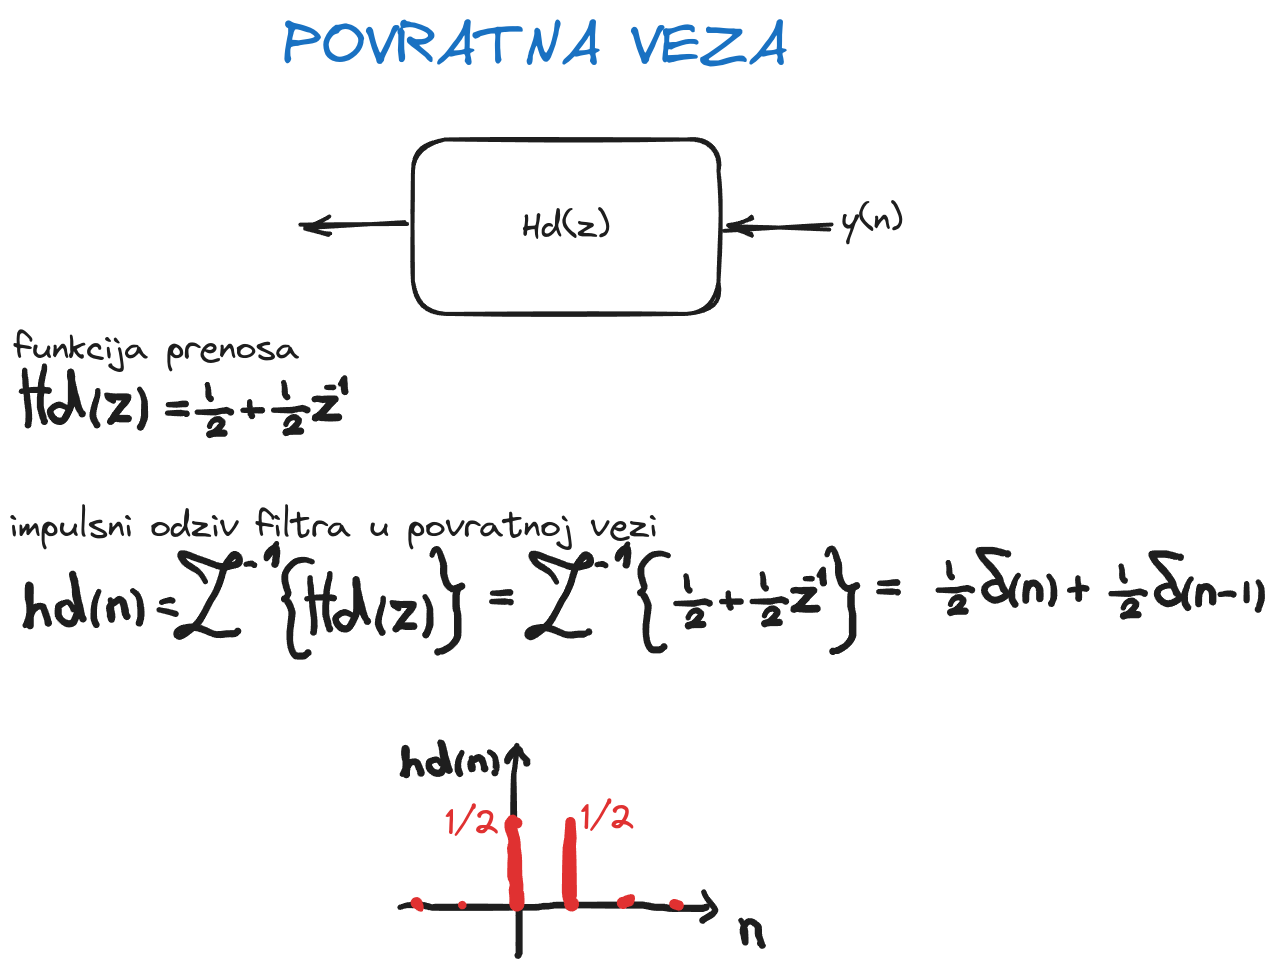 POVRATNA VEZA
Hd(z)
y(n)
funkcija prenosa
Hd(z) = 1/2 + 1/2 z^-1
impulsni odziv filtra u povratnoj vezi
hd(n) = Z^-1 {Hd(z)} = Z^-1 {1/2 + 1/2 z^-1} = 1/2 δ(n) + 1/2 δ(n-1)
hd(n)
1/2 1/2
n